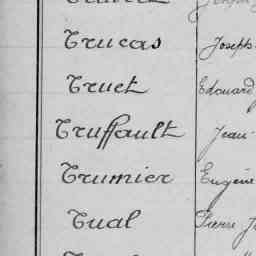 Trucas Joseph
Truet Edouard
Truffault Jean
Trumier Eugène
Tual Pierre